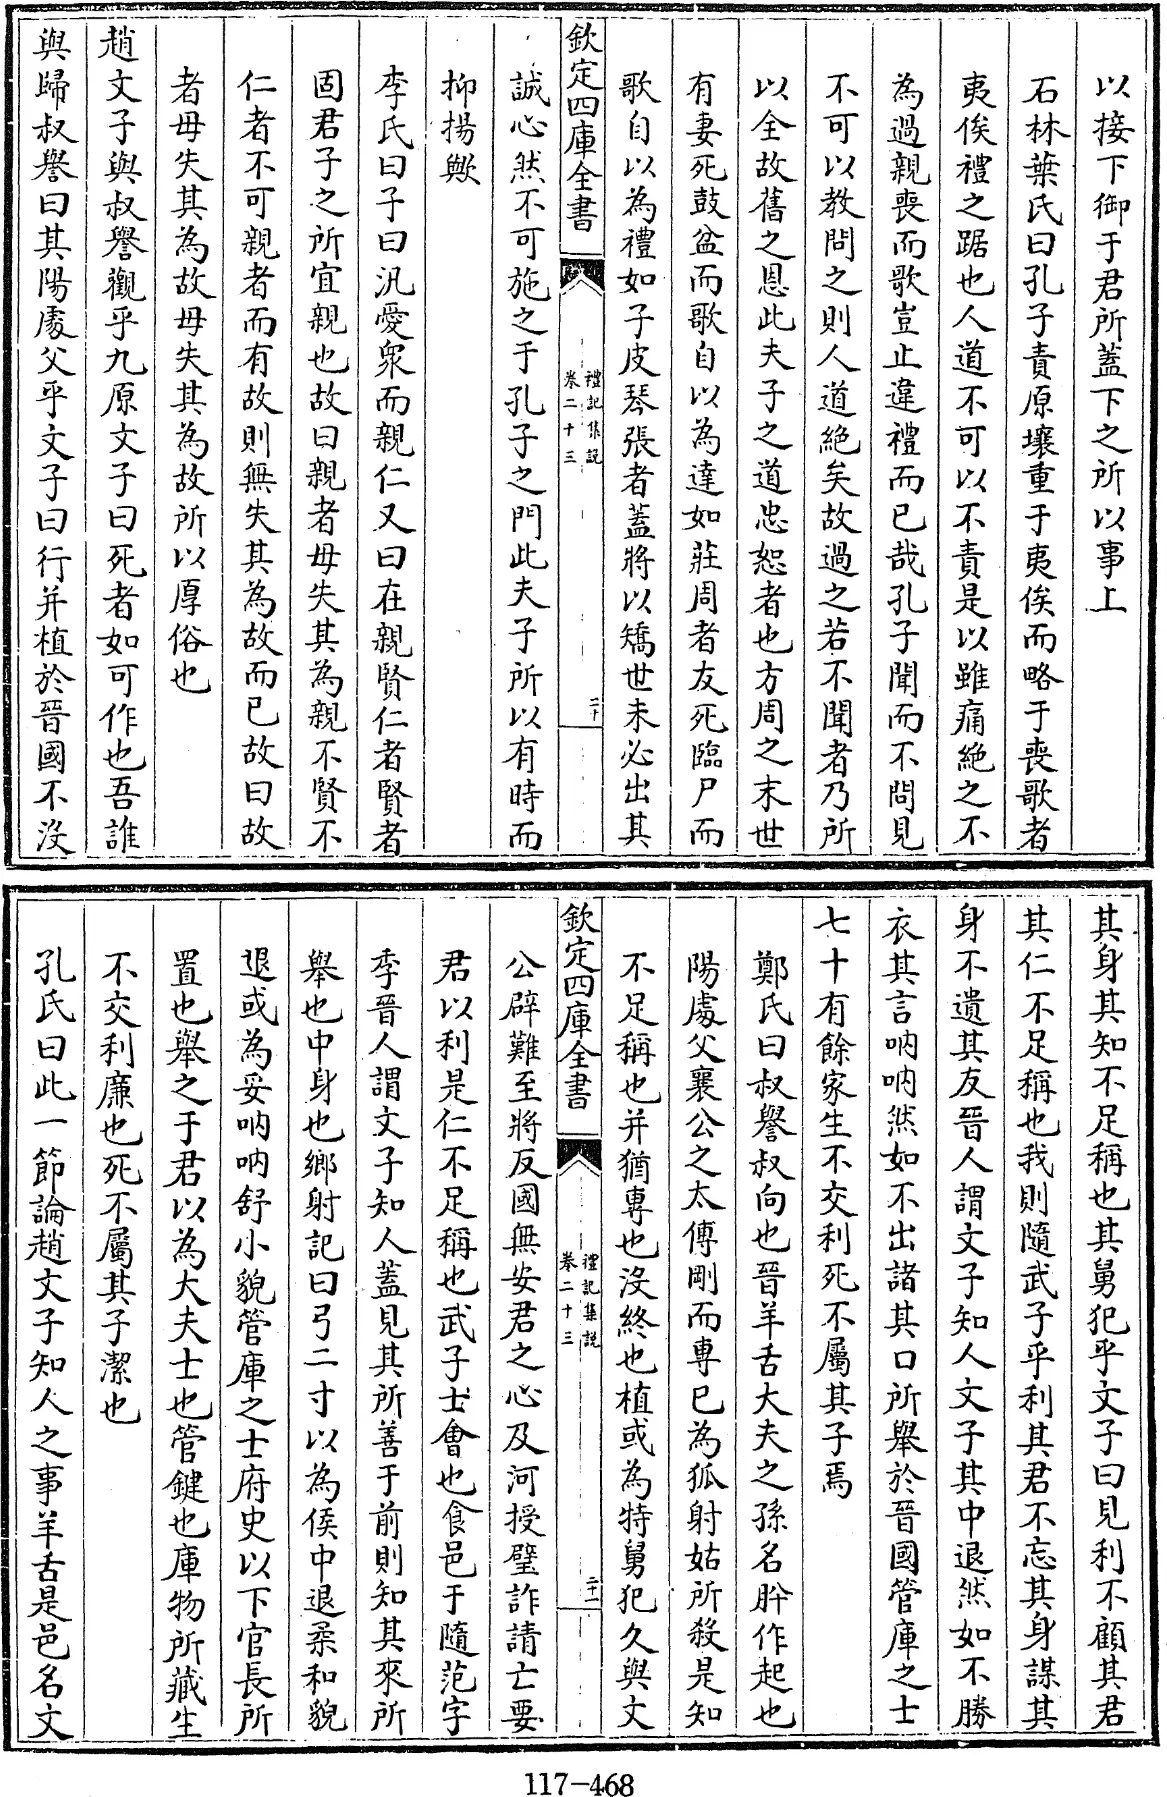 以接下御于君所蓋下之所以事上
石林葉氏曰孔子責原壤重于夷俟而略于喪歌者
夷俟禮之踞也人道不可以不責是以雖痛絶之不
為過親喪而歌豈止違禮而已哉孔子聞而不問見
不可以教問之則人道絶矣故過之若不聞者乃所
以全故舊之恩此夫子之道忠恕者也方周之末世
有妻死鼓盆而歌自以為達如莊周者友死臨尸而
歌自以為禮如子皮琴張者蓋將以矯世未必出其
欽定四庫全書
禮記集説
卷二十三
二十
誠心然不可施之于孔子之門此夫子所以有時而
抑揚歟
李氏曰子曰汎愛衆而親仁又曰在親賢仁者賢者
固君子之所宜親也故曰親者毋失其為親不賢不
仁者不可親者而有故則無失其為故而已故曰故
者毋失其為故毋失其為故所以厚俗也
趙文子與叔譽觀乎九原文子曰死者如可作也吾誰
與歸叔譽曰其陽處父乎文子曰行并植於晉國不沒
其身其知不足稱也其舅犯乎文子曰見利不顧其君
其仁不足稱也我則隨武子乎利其君不忘其身謀其
身不遺其友晉人謂文子知人文子其中退然如不勝
衣其言呐呐然如不出諸其口所舉於晉國管庫之士
七十有餘家生不交利死不屬其子焉
鄭氏曰叔譽叔向也晉羊舌大夫之孫名肸作起也
陽處父襄公之太傅剛而專已為狐射姑所殺是知
不足稱也并猶專也沒終也植或為特舅犯久與文
欽定四庫全書
禮記集説
卷二十三
二十一
公辟難至將反國無安君之心及河授璧詐請亡要
君以利是仁不足稱也武子士會也食邑于隨范字
季晉人謂文子知人蓋見其所善于前則知其來所
舉也中身也鄉射記曰弓二寸以為侯中退柔和貌
退或為妥呐呐舒小貌管庫之士府史以下官長所
置也舉之于君以為大夫士也管鍵也庫物所藏生
不交利廉也死不屬其子潔也
孔氏曰此一節論趙文子知人之事羊舌是邑名文
117-468